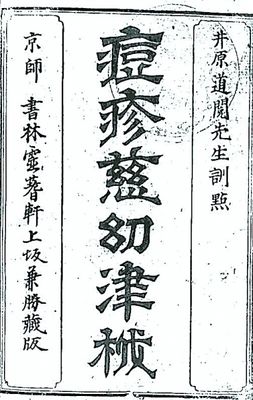 井原道閲先生訓點
痘疹慈幼津筏
京師 書林蓍軒上坂兼勝藏版